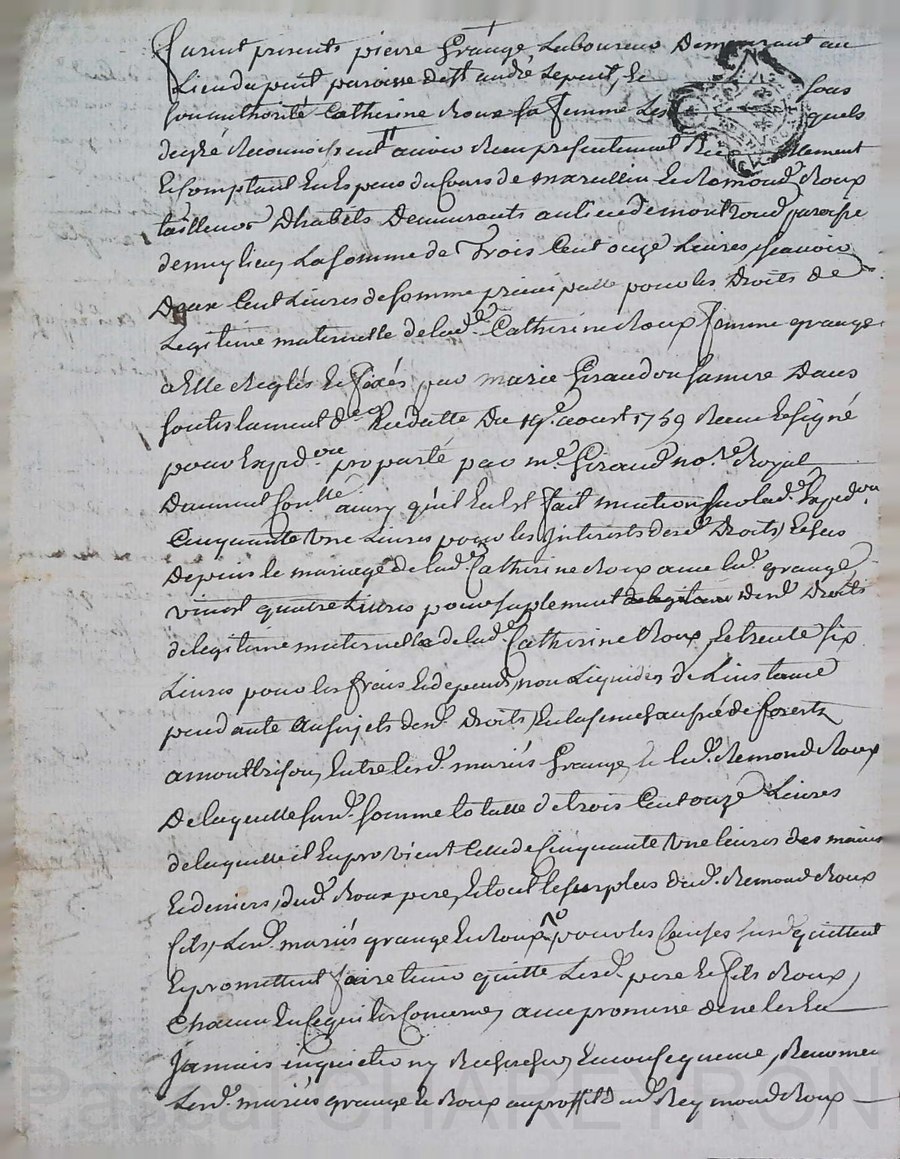 furent presents pierre Grange Laboureur Demeurant au
Lieu du pont paroisse de st andré le puit, et sous
son authorité Catherine Roux sa femme Lesquels
de gré Reconnoissent avoir Reau presentement Reellement
et Comptant En Espece du Cours de marcellin et Remond Roux
tailleurs Dhabits Demeurants au lieu de montrond paroisse
de meylieu La somme de Trois Cent onze Livres scavoir
Deux Cent Livres de somme principalle pour les Droits de
Legitime maternelle de lade Catherine Roux femme grange
a Elle Reglés et fixés par marie Giraudon sa mere Dans
son testament Du 19e aoust 1759 Reau et signé
pour Expedon par me Giraud nore Royal
Duement Conllé ainsy qu'il En Est fait mention sur lade Expedon
Cinquante une Livres pour les Interests desd Droits Echus
Depuis le mariage de lade Catherine Roux avec led grange
vingt quatre Livres pour suplement desd Droits
de legitime maternelle de lade Catherine Roux, et trente six
Livres pour les frais et depends non Liquides de L'instance
pendante au sujet desd Droits En la senechaussée de forestz
a montbrison Entre lesd mariés Grange, et led Remond Roux
De laquelle susd somme totalle de trois Cent onze Livres
de laquelle il En provient Celle de Cinquante une livres des mains
et deniers dud Roux pere, et tout le surplus dud Remond Roux
fils, Lesd mariés grange et Roux pour les Causes susd quittent
et promettent faire tenir quitte Lesd pere et fils Roux,
Chacun En Ce qui les Concerne, avec promesse de ne les En
Jamais inquietter ny Rechercher, En consequence, Renoncent
Lesd mariés grange et Roux au proffit dud Reymond Roux
Pascal CHAREYRON